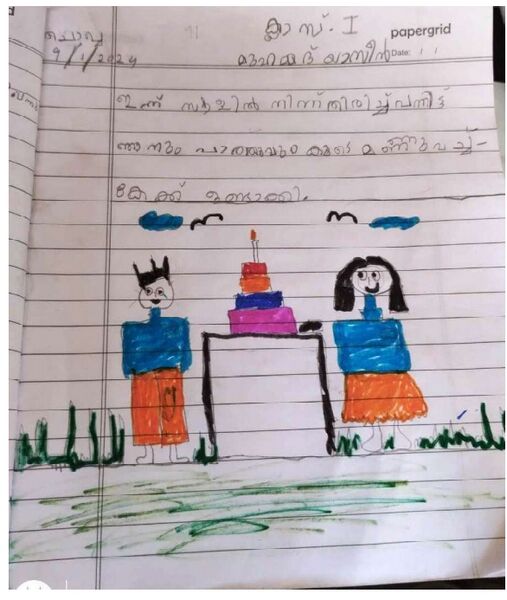 ക്ലാസ്. I
papergrid
ചൊവ്വ
9/1/2024
മുഹമ്മദ് യാസീൻ
Date: / /
ഇന്ന് സ്കൂളിൽ നിന്ന് തിരിച്ച് വന്നിട്ട്
ഞാനും പാത്തുവും കൂടെ മണ്ണുവച്ച്-
കേക്ക് ഉണ്ടാക്കി.